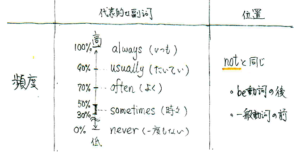 代表的な副詞
位置
頻度
高
100% always (いつも)
80% usually (たいてい)
70% often (よく)
50%
30% sometimes (時々)
0% never (一度もしない)
低
notと同じ
・be動詞の後
・一般動詞の前